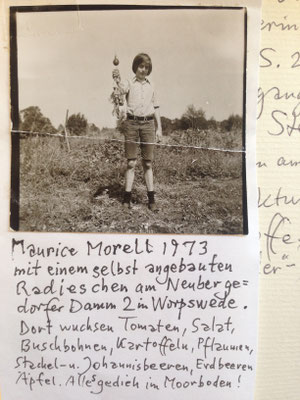 erin
S. 2
gang
St
n am
ktu
fe
er"-
Maurice Morell 1973
mit einem selbst angebauten
Radieschen am Neuberge=
dorfer Damm 2 in Worpswede.
Dort wuchsen Tomaten, Salat,
Buschbohnen, Kartoffeln, Pflaumen,
Stachel-u. Johannisbeeren, Erdbeeren
Äpfel. Alles gedieh im Moorboden!